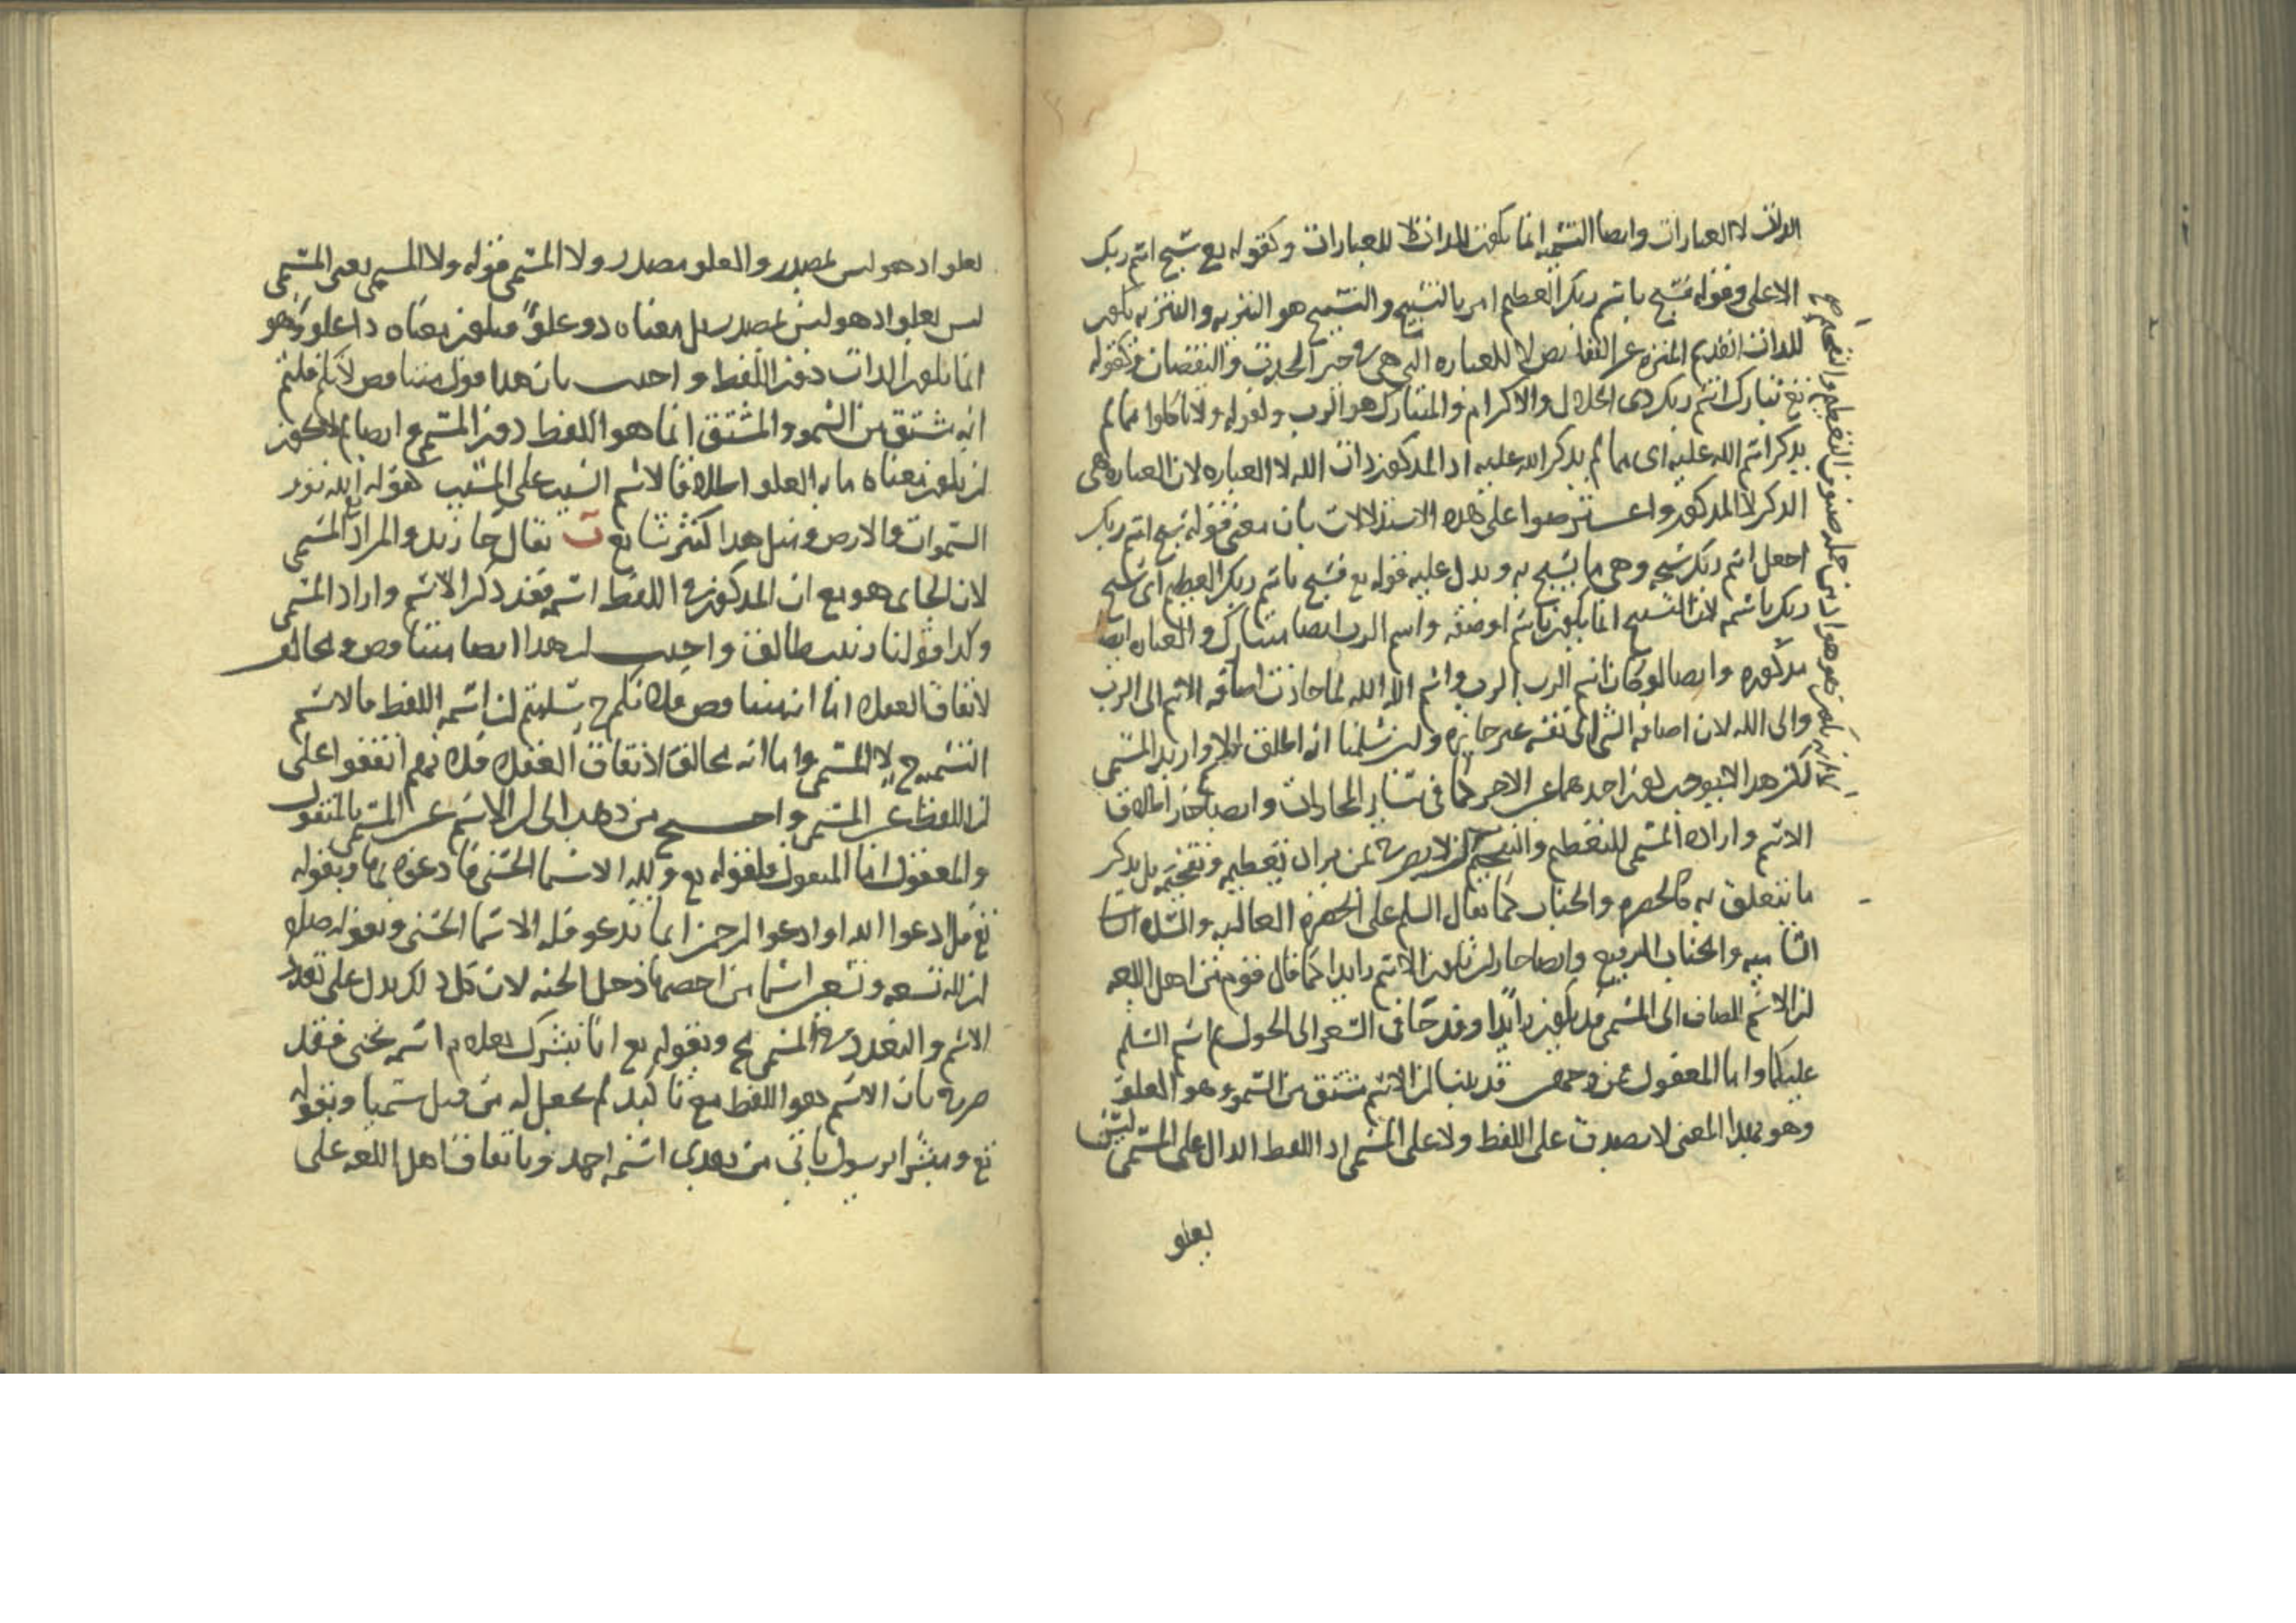 الذات لا العبارات وايضا التسميه انما تكون للذات لا للعبارات وكقوله تع سبح اسم ربك
الاعلى وقوله فسبح باسم ربك العظيم امر بالتسبيح والتسبيح هو التنزيه والتنزيه يكون
للذات القديم المنزه عن النقايص لا للعباره التى هى فى حيز الحدوث والنقصان وكقوله
تع تبارك اسم ربك ذى الجلال والاكرام والمتبارك هو الرب ولقوله ولا تاكلوا مما لم
يذكر اسم الله عليه اى مما لم يذكر الله عليه اذ المذكور ذات الله لا العباره لان العباره هى
الذكر لا المذكور واعترضوا على هذه الاستدلالات بان معنى قوله سبح اسم ربك
اجعل اسم ربك وهى ما يسبح به ويدل عليه قوله تع فسبح باسم ربك العظيم اى سبح
ربك باسمه لان التسبيح انما يكون باسم او صفه واسم الرب ايضا متبارك والعباره ايضا
مذكوره وايضا لو كان اسم الرب الرب واسم الله الله لما جازت اضافه الاسم الى الرب
والى الله لان اضافه الشى الى نفسه غير جايزه ولئن سلمنا انه اطلق الاسم واريد المسمى
لكن هذا لا يوجب كون احدهما عين الاخر كما فى ساير المجازات وايضا جاز اطلاق
الاسم واراده المسمى للتعظيم والتفخيم لان لا يصرح بمن يراد تعظيمه وتفخيمه بل يذكر
ما يتعلق به كالحضره والجناب كما يقال السلم على الحضره العاليه والسده
الساميه والجناب الرفيع وايضا جاز ان يكون الاسم زايدا كما قال قوم من اهل اللغه
ان الاسم المضاف الى المسمى قد يكون زايدا وقد جا فى الشعر الى الحول ثم اسم السلم
عليكما واما المعقول فمن وجهين قد بينا ان الاسم مشتق من السمو وهو العلو
وهو بهذا المعنى لا يصدق على اللفظ ولا على المسمى اذ اللفظ الدال على المسمى ليس
يعلو
يعلو اذ هو ليس بمصدر والعلو مصدر ولا المسمى قوله ولا المسمى يعنى المسمى
ليس يعلو اذ هو ليس بمصدر بل معناه ذو علو فيكون معناه ذا علو وهو
انما يكون الذات دون اللفظ واجيب بان هذا قول متناقض لانكم قلتم
انه مشتق من السمو والمشتق انما هو اللفظ دون المسمى وايضا لم لا يجوز
ان يكون معناه ما به العلو اطلاقا لاسم السبب على المسبب كقوله الله نور
السموات والارض ومثل هذا كثير شايع ت يقال جا زيد والمراد المسمى
لان الجاى هو مع ان المذكور فى اللفظ اسمه فقد ذكر الاسم واراد المسمى
وكذا قولنا زينب طالق واجيب ان هذا ايضا متناقض ومخالف
لاتفاق العقلا اما انه متناقض فلانكم سلمتم ان اسمه اللفظ فالاسم
التسميه لا المسمى واما انه مخالف لاتفاق العقلا فلانهم اتفقوا على
ان اللفظ غير المسمى واحتج من ذهب الى ان الاسم غير المسمى بالمنقول
والمعقول اما المنقول فلقوله تع ولله الاسما الحسنى فادعوه بها وبقوله
تع قل ادعوا الله او ادعوا الرحمن ايا ما تدعو فله الاسما الحسنى وبقوله صلم
ان لله تسعه وتسعين اسما من احصاها دخل الجنه لان كل ذلك يدل على تعدد
الاسم والتعدد فى المسمى مح وبقوله تع انا نبشرك بغلام اسمه يحيى فقد
صرح بان الاسم هو اللفظ مع تاكيد لم نجعل له من قبل سميا وبقوله
تع ومبشرا برسول ياتى من بعدى اسمه احمد وباتفاق اهل اللغه على